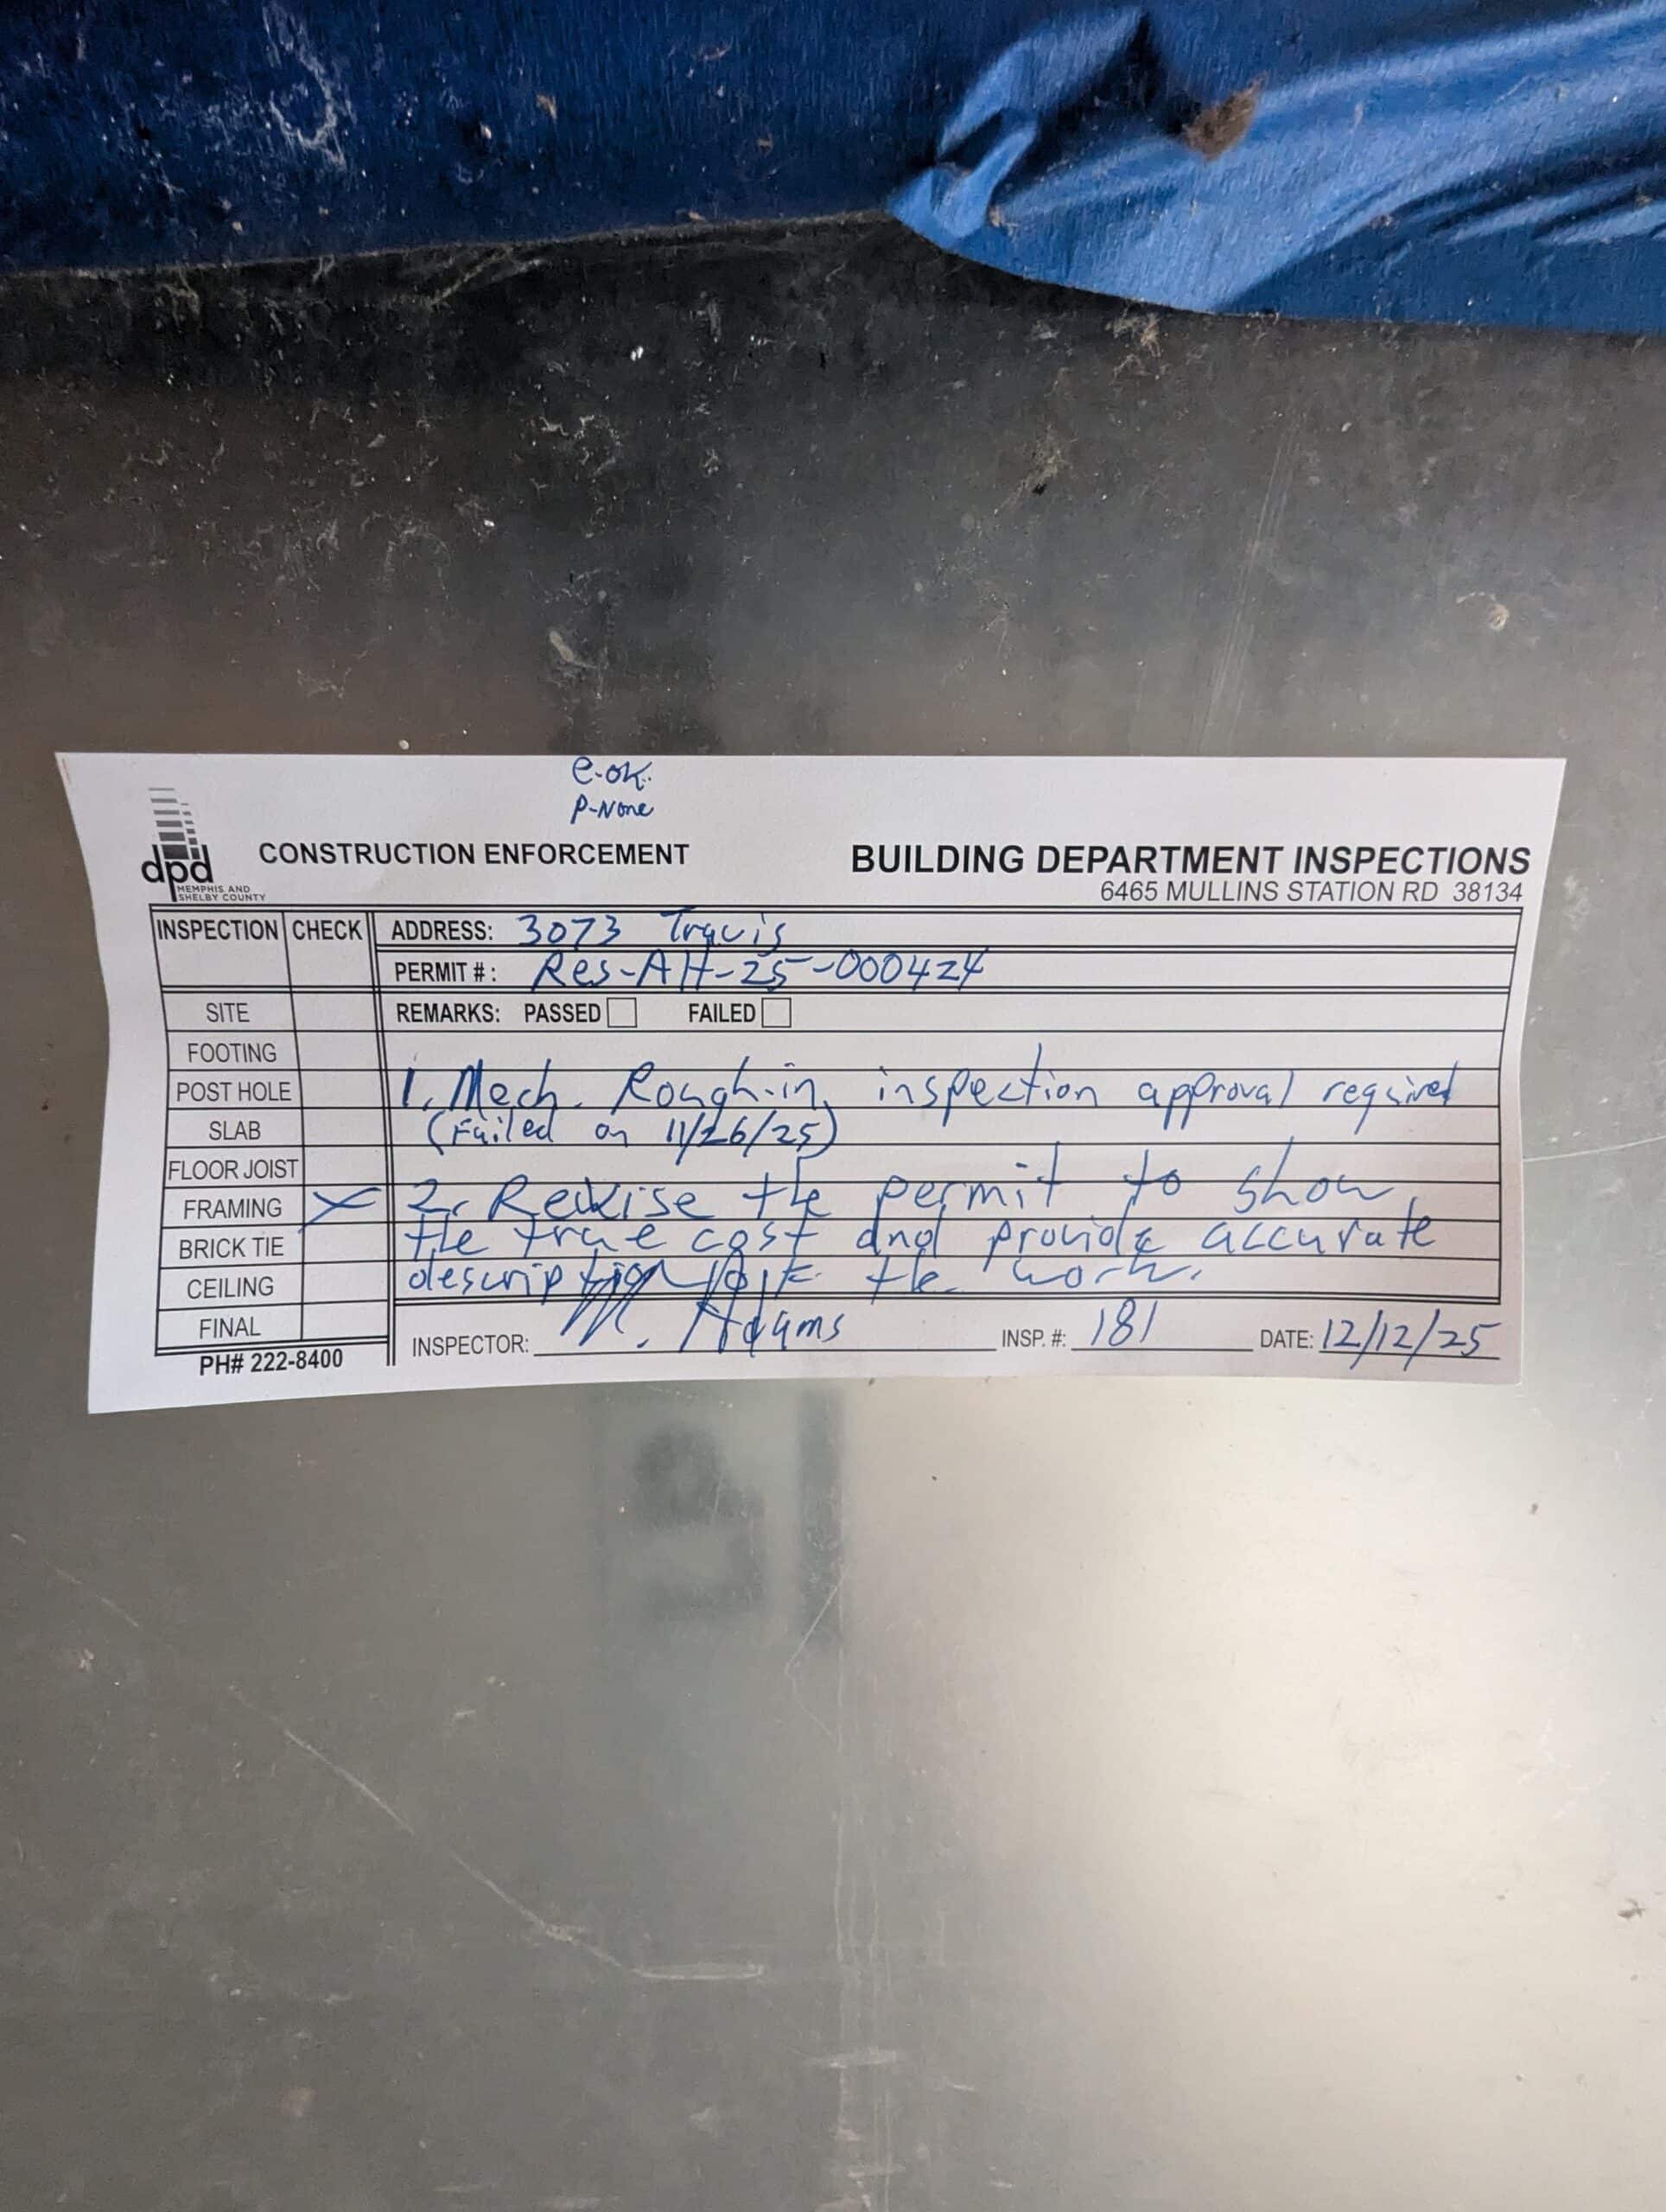 e-ok.
P-None
dpd
MEMPHIS AND
SHELBY COUNTY
CONSTRUCTION ENFORCEMENT
BUILDING DEPARTMENT INSPECTIONS
6465 MULLINS STATION RD 38134
INSPECTION CHECK
ADDRESS: 3073 Travis
PERMIT #: Res-Alt-25-000424
SITE
REMARKS: PASSED FAILED
FOOTING
POST HOLE
1. Mech. Rough-in inspection approval required
SLAB
(Failed on 11/26/25)
FLOOR JOIST
FRAMING X
2. Revise the permit to show
BRICK TIE
the true cost and provide accurate
CEILING
description for the work.
FINAL
INSPECTOR: M. Adams INSP. #: 181 DATE: 12/12/25
PH# 222-8400